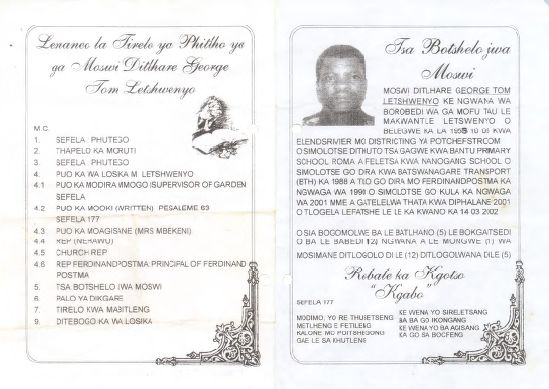 Lenaneo la Tirelo ya Phitlho ya
ga Moswi Ditlhare George
Tom Letshwenyo
M.C.
1. SEFELA PHUTEGO
2. THAPELO KA MORUTI
3. SEFELA PHUTEGO
4. PUO KA WA LOSIKA M LETSHWENYO
4.1 PUO KA MODIRA MMOGO (SUPERVISOR OF GARDEN
SEFELA
4.2 PUO KA MOOKI (WRITTEN) PESALEME 63
SEFELA 177
4.3 PUO KA MOAGISANE (MRS MBEKENI)
4.4 REP (NEHAWU)
4.5 CHURCH REP
4.6 REP FERDINANDPOSTMA PRINCIPAL OF FERDINAND
POSTMA
5. TSA BOTSHELO JWA MOSWI
6. PALO YA DIKGARE
7. TIRELO KWA MABITLENG
9. DITEBOGO KA WA LOSIKA
Tsa Botshelo jwa
Moswi
MOSWI DITLHARE GEORGE TOM
LETSHWENYO KE NGWANA WA
BOROBEDI WA GA MOFU TAU LE
MAKWANTLE LETSWENYO O
BELEGWE KA LA 10 06 KWA
ELENDSRIVIER MO DISTRICTING YA POTCHEFSTROOM
O SIMOLOTSE DITHUTO TSA GAGWE KWA BANTU PRIMARY
SCHOOL ROMA A FELETSA KWA NANOGANG SCHOOL O
SIMOLOTSE GO DIRA KWA BATSWANAGARE TRANSPORT
(ETH) KA 1988 A TLO GO DIRA MO FERDINANDPOSTMA KA
NGWAGA WA O SIMOLOTSE GO KULA KA NGWAGA
WA 2001 MME A GATELELWA THATA KWA DIPHALANE 2001
O TLOGELA LEFATSHE LE LE KA KWANO KA 14 03 2002
O SIA BOGOMOLWE BA LE BATLHANO (5) LE BOKGAITSEDI
O BA LE BABEDI (2) NGWANA A LE MONGWE (1) WA
MOSIMANE DITLOGOLO DI LE (12) DITLOGOLWANA DILE (5)
Robale ka Kgotso
"Kgabo"
SEFELA 177
MODIMO, YO RE THUSETSENG
METLHENG E FETILENG
KALONE MO POITSHEGONG
GAE LE SA KHUTLENG
KE WENA YO SIRELETSANG
BA BA GO IKONGANG
KE WENA YO BA AGISANG
KA GO SA BOCFENG